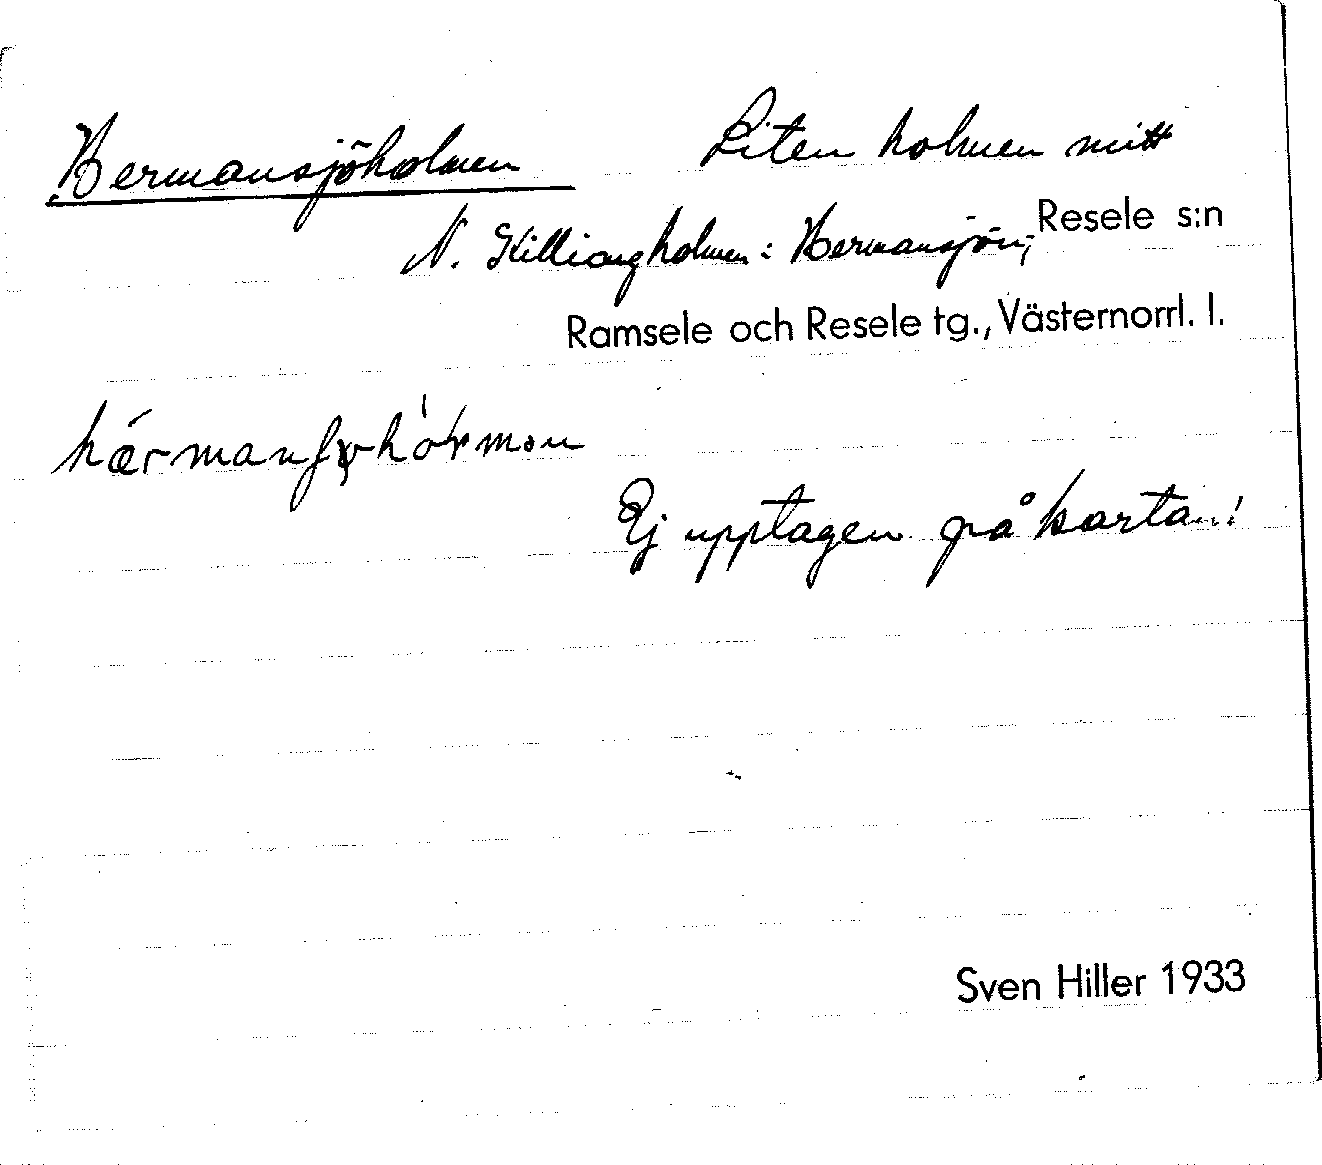 Hermansjöholmen Liten holmen mitt
N. Killingholmen: Hermansjön; Resele s:n
Ramsele och Resele tg., Västernorrl. l.
Ej upptagen på kartan!
Sven Hiller 1933